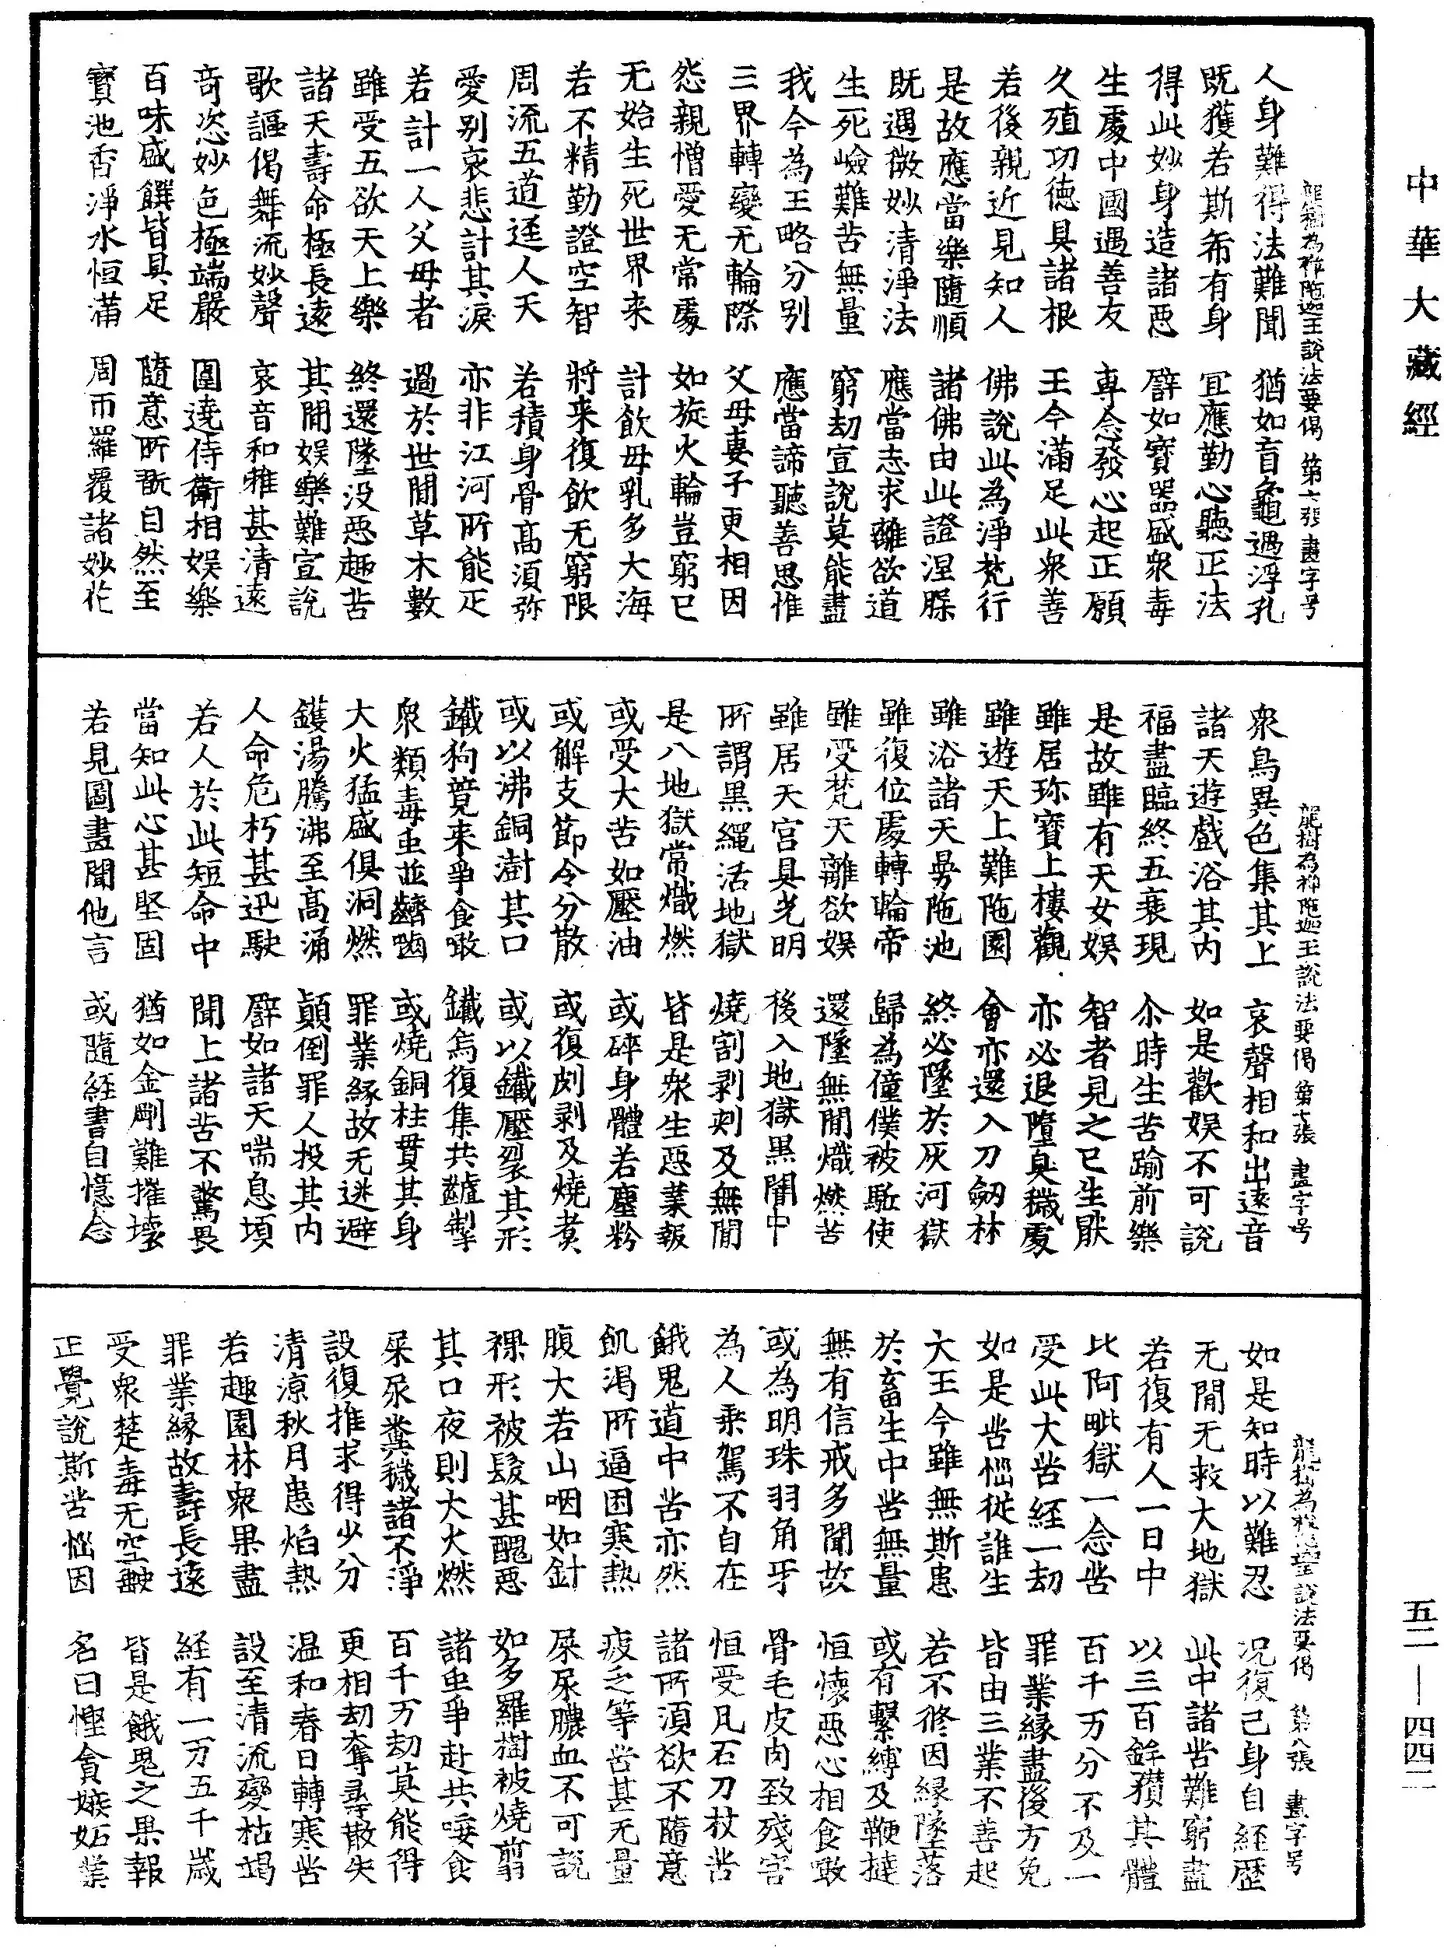 中華大藏經
龍樹為禪陁迦王說法要偈 第六張 畫字号
人身難得法難聞 猶如盲龜遇浮孔
既獲若斯希有身 宜應勤心聽正法
得此妙身造諸惡 譬如寶器盛衆毒
生處中國遇善友 專念發心起正願
久殖功德具諸根 王今滿足此衆善
若後親近見知人 佛說此為淨梵行
是故應當樂隨順 諸佛由此證涅槃
既遇微妙清淨法 應當志求離欲道
生死嶮難苦無量 窮劫宣說莫能盡
我今為王略分別 應當諦聽善思惟
三界轉變无輪際 父母妻子更相因
怨親憎愛无常處 如旋火輪豈窮已
无始生死世界来 計飲母乳多大海
若不精勤證空智 將来復飲无窮限
周流五道逕人天 若積身骨高須弥
愛别哀悲計其淚 亦非江河所能疋
若計一人父母者 過於世間草木數
雖受五欲天上樂 終還墜没惡趣苦
諸天壽命極長遠 其間娛樂難宣說
歌謳偈舞流妙聲 哀音和雅甚清遠
竒姿妙色極端嚴 圍遶侍衛相娛樂
百味盛饌皆具足 隨意所翫自然至
寶池香淨水恒滿 周帀羅覆諸妙花
龍樹為禪陁迦王說法要偈 第七張 畫字号
衆鳥異色集其上 哀聲相和出遠音
諸天遊戲浴其内 如是歡娛不可說
福盡臨終五衰現 尒時生苦踰前樂
是故雖有天女娛 智者見之已生猒
雖居珎寶上樓觀 亦必退墮臭穢處
雖遊天上難陁園 會亦還入刀劔林
雖浴諸天曼陁池 終必墜於灰河獄
雖復位處轉輪帝 歸為僮僕被駈使
雖受梵天離欲娛 還墜無間熾燃苦
雖居天宫具光明 後入地獄黑闇中
所謂黑繩活地獄 燒割剥刾及無間
是八地獄常熾燃 皆是衆生惡業報
或受大苦如壓油 或碎身體若塵粉
或解支節令分散 或復剫剥及燒煑
或以沸銅澍其口 或以鐵壓裂其形
鐵狗竟来爭食噉 鐵鳥復集共齟掣
衆類毒虫並齩囓 或燒銅柱貫其身
大火猛盛俱洞燃 罪業緣故无逃避
鑊湯騰沸至高涌 顛倒罪人投其内
人命危朽甚迅駛 譬如諸天喘息頃
若人於此短命中 聞上諸苦不驚畏
當知此心甚堅固 猶如金剛難摧壞
若見圖畫聞他言 或隨經書自憶念
龍樹為禪陁迦王說法要偈 第八張 畫字号
如是知時以難忍 况復己身自經歷
无間无救大地獄 此中諸苦難窮盡
若復有人一日中 以三百鉾攢其體
比阿毗獄一念苦 百千万分不及一
受此大苦經一劫 罪業緣盡後方免
如是苦惱從誰生 皆由三業不善起
大王今雖無斯患 若不修因緣墜落
於畜生中苦無量 或有繫縛及鞭撻
無有信戒多聞故 恒懷惡心相食噉
或為明珠羽角牙 骨毛皮肉致殘害
為人乗駕不自在 恒受凡石刀杖苦
餓鬼道中苦亦然 諸所須欲不隨意
飢渴所逼困寒熱 疲乏等苦甚无量
腹大若山咽如針 屎尿膿血不可說
裸形被髮甚醜惡 如多羅樹被燒剪
其口夜則大火燃 諸虫爭赴共唼食
屎尿糞穢諸不淨 百千万劫莫能得
設復推求得少分 更相劫奪尋散失
清凉秋月患焰熱 温和春日轉寒苦
若趣園林衆果盡 設至清流變枯竭
罪業緣故壽長遠 経有一万五千歲
受衆楚毒无空缺 皆是餓鬼之果報
正覺說斯苦惱因 名曰慳貪嫉妬業
五二—四四二